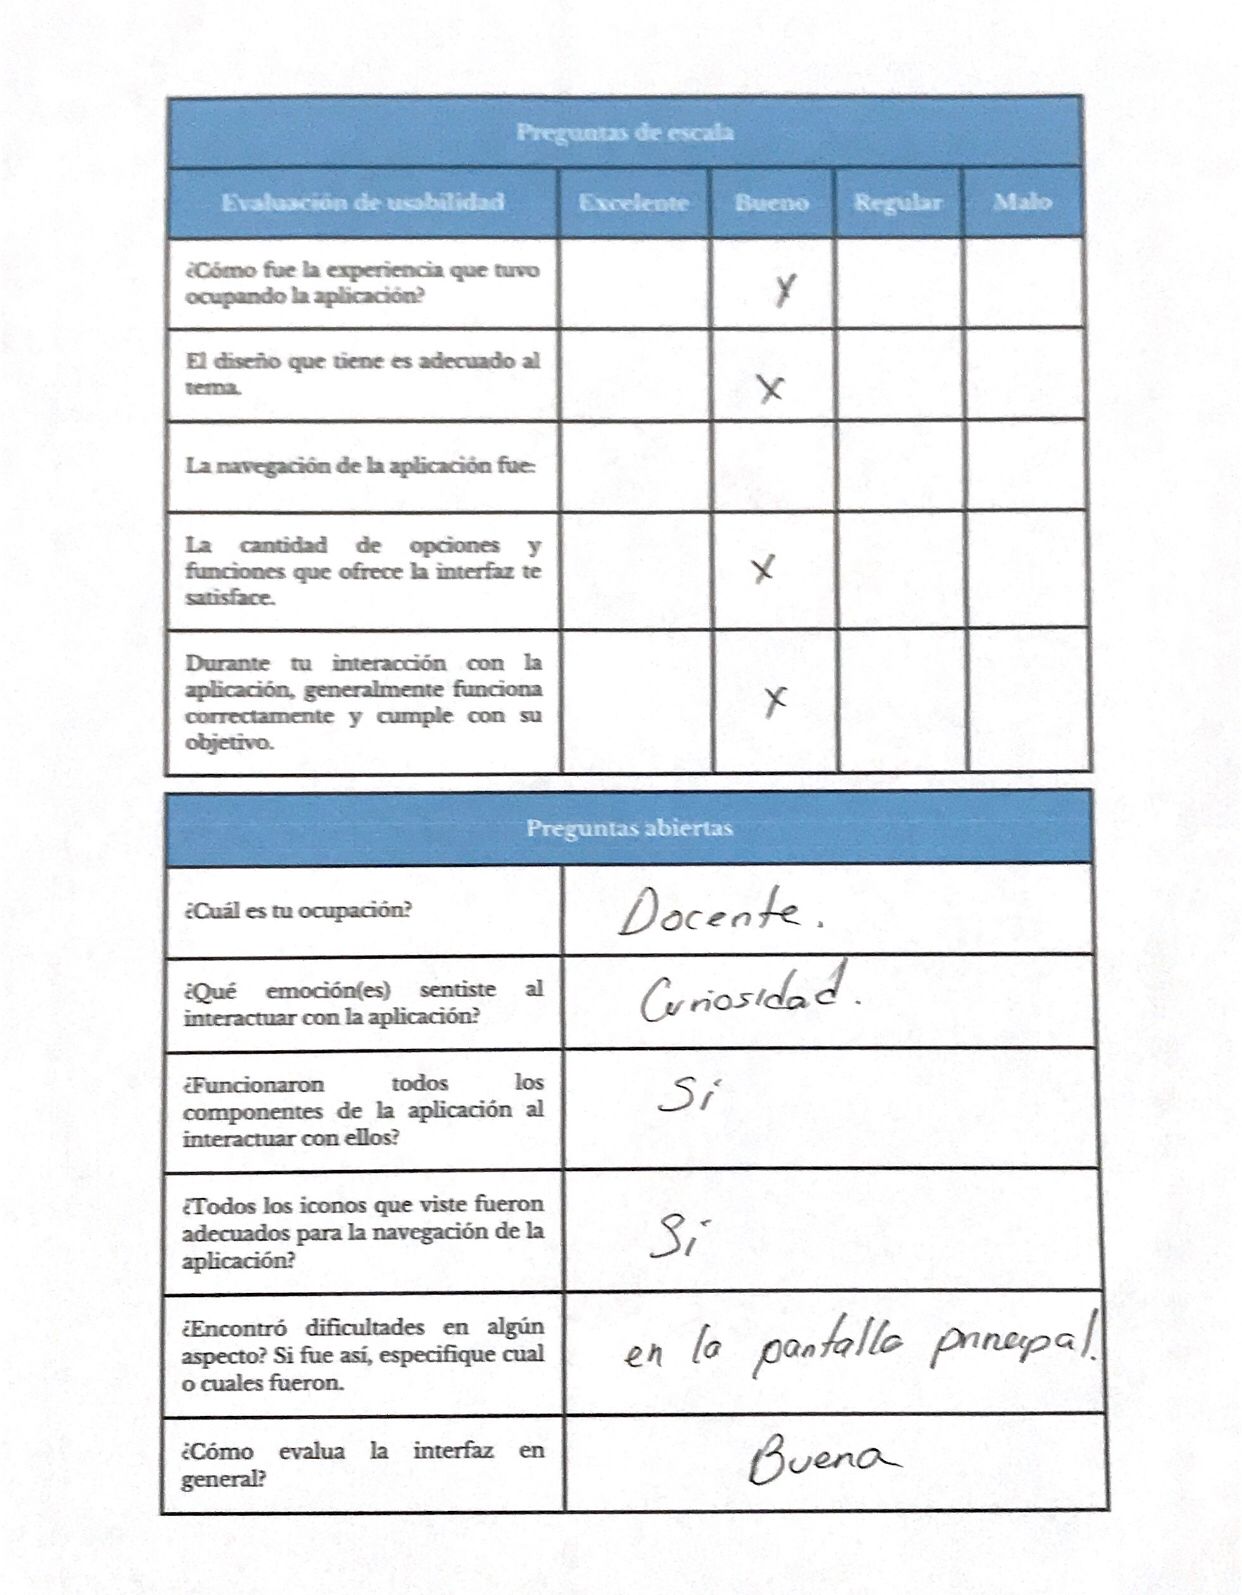 Preguntas de escala
Evaluación de usabilidad Excelente Bueno Regular Malo
¿Cómo fue la experiencia que tuvo
ocupando la aplicación?
X
El diseño que tiene es adecuado al
tema.
X
La navegación de la aplicación fue:
La cantidad de opciones y
funciones que ofrece la interfaz te
satisface.
X
Durante tu interacción con la
aplicación, generalmente funciona
correctamente y cumple con su
objetivo.
X
Preguntas abiertas
¿Cuál es tu ocupación?
Docente.
¿Qué emoción(es) sentiste al
interactuar con la aplicación?
Curiosidad.
¿Funcionaron todos los
componentes de la aplicación al
interactuar con ellos?
Si
¿Todos los iconos que viste fueron
adecuados para la navegación de la
aplicación?
Si
¿Encontró dificultades en algún
aspecto? Si fue así, especifique cual
o cuales fueron.
en la pantalla principal.
¿Cómo evalua la interfaz en
general?
Buena